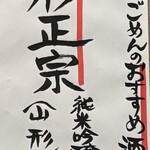 ごめんのおすすめ酒
形正宗
純米吟
(山形